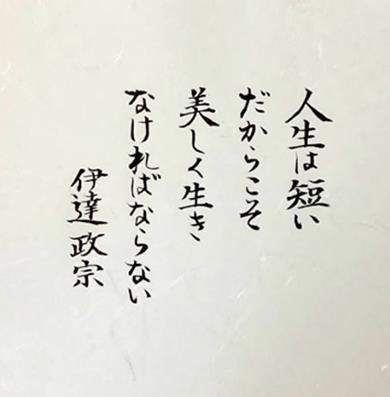 人生は短い
だからこそ
美しく生き
なければならない
伊達政宗